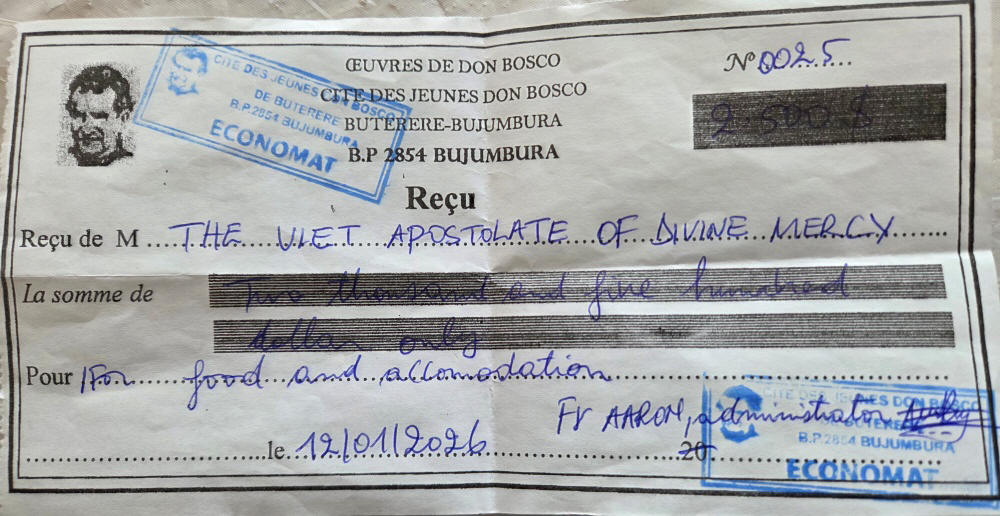 ŒUVRES DE DON BOSCO
CITE DES JEUNES DON BOSCO
BUTERERE-BUJUMBURA
B.P 2854 BUJUMBURA
N° 0025
2 500 $
CITE DES JEUNES DON BOSCO
DE BUTERERE
B.P.2854 BUJUMBURA
ECONOMAT
Reçu
Reçu de M THE VLET APOSTOLATE OF DIVINE MERCY
La somme de Two thousand and five hundred
dollar only
Pour For food and accomodation
Fr AARON, administrator
le 12/01/2026 20
CITE DES JEUNES DON BOSCO
DE BUTERERE
B.P.2854 BUJUMBURA
ECONOMAT